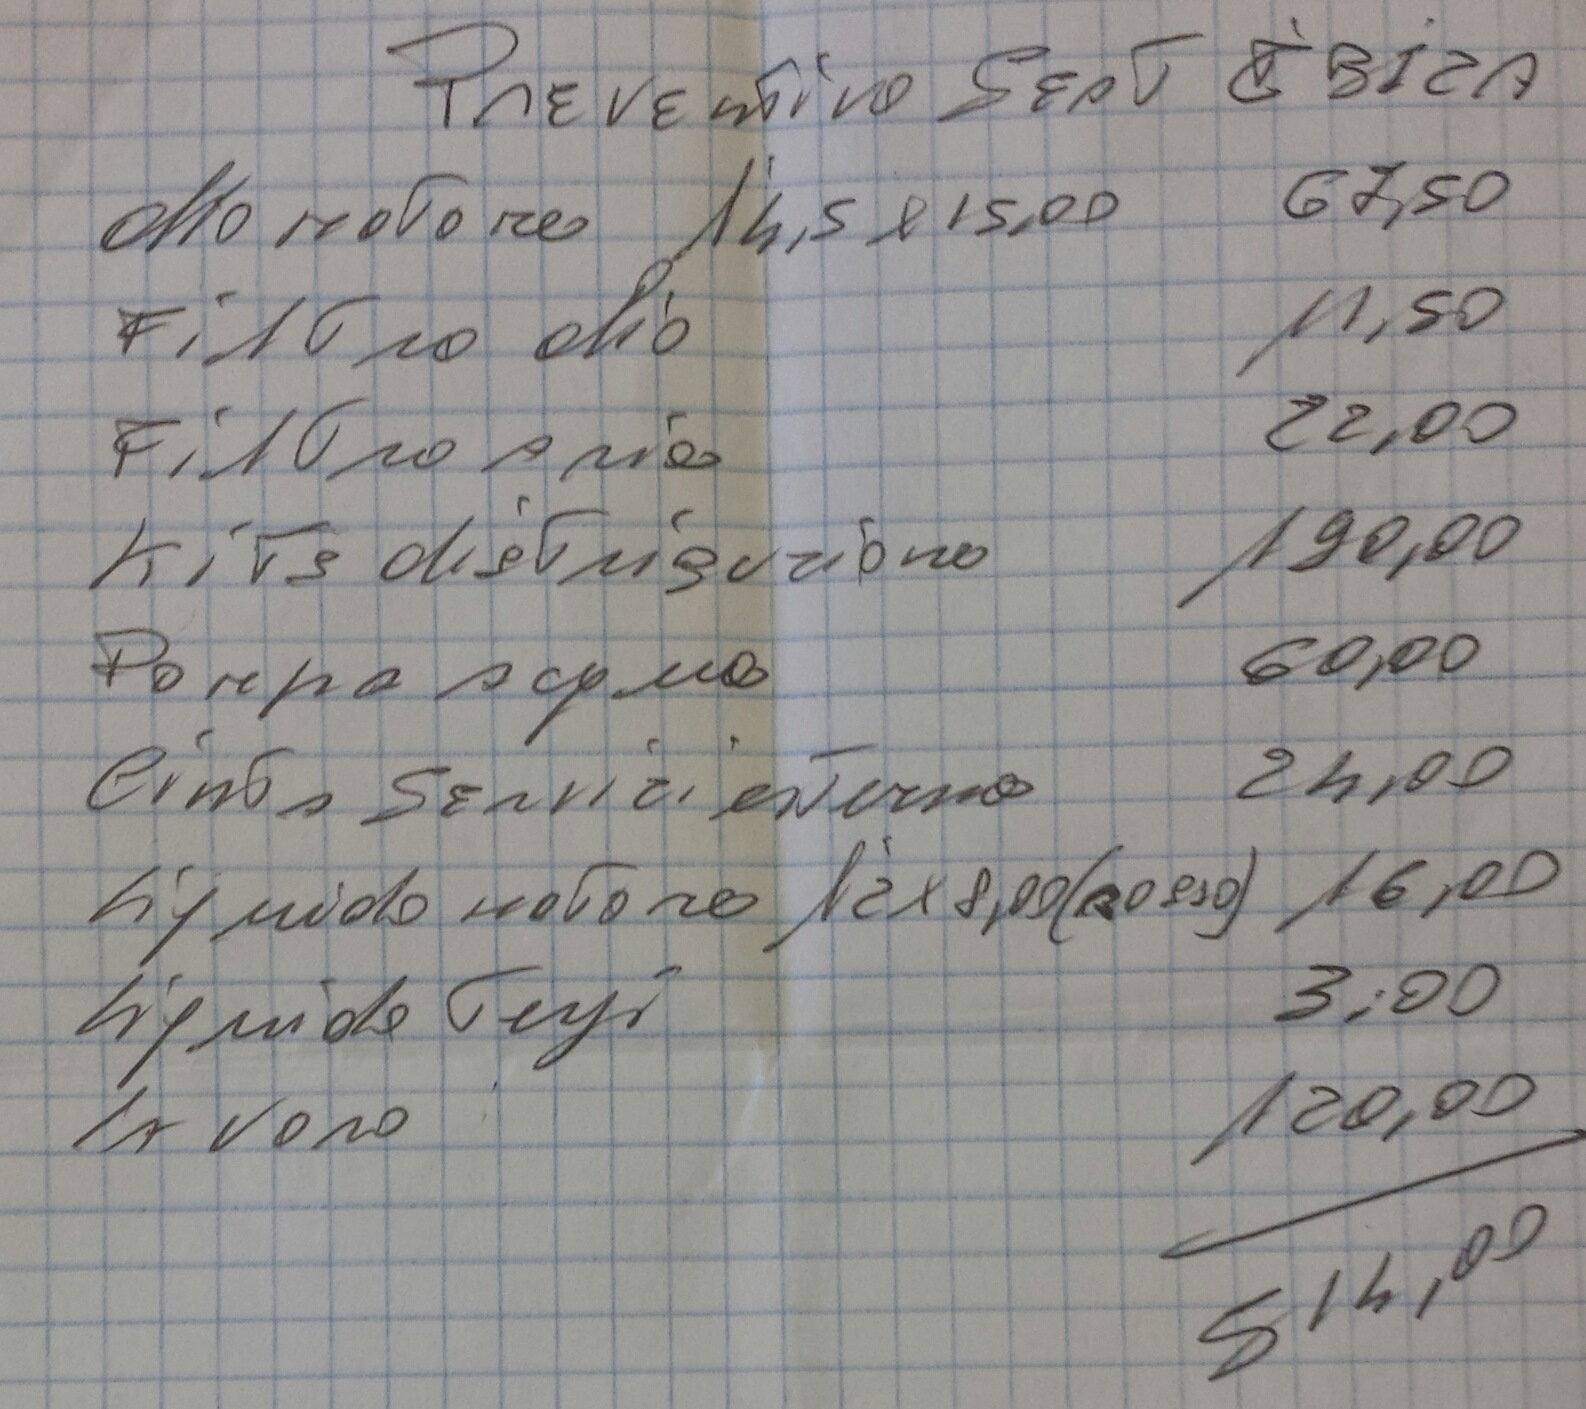 Preventivo Seat IBiza
olio motore l 4,5 x 15,00 67,50
Filtro olio 11,50
Filtro aria 22,00
Kits distribuzione 190,00
Pompa acqua 60,00
Cinta Servizi esterna 24,00
liquido motore l 2 x 8,00 (Rosso) 16,00
liquido Tergi 3,00
lavoro 120,00
514,00